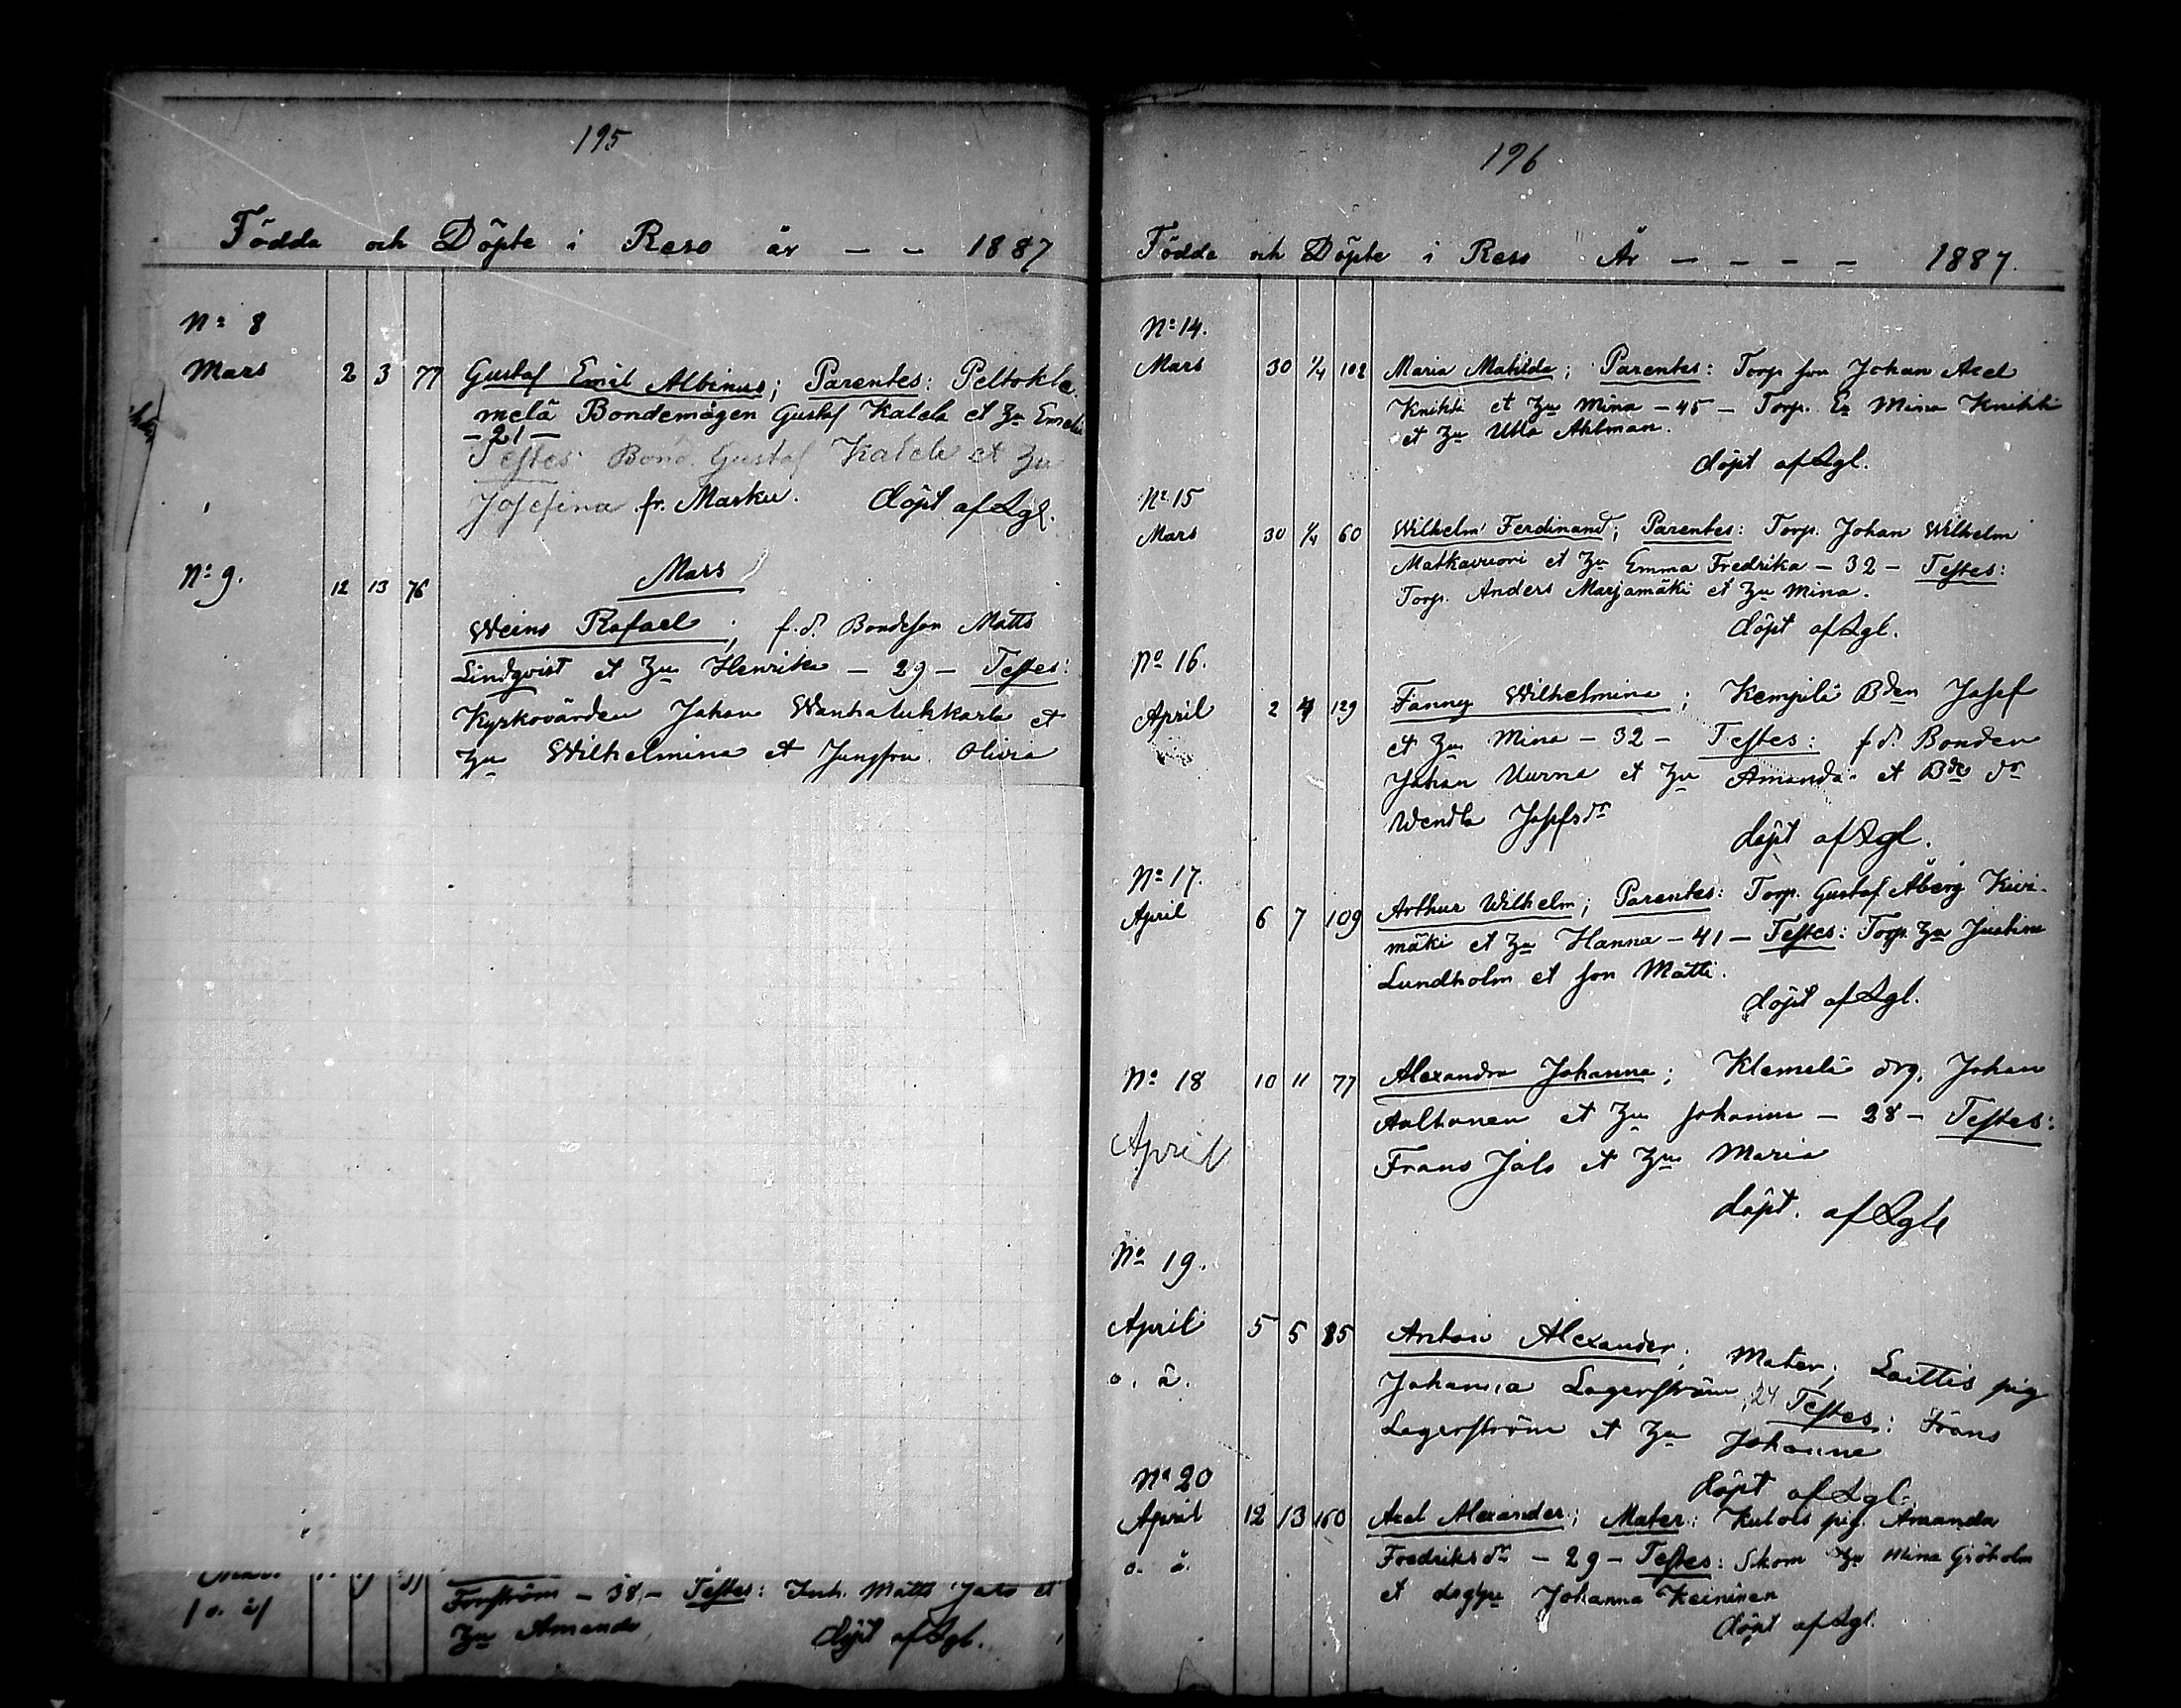 195
Födda och Döpte i Reso år — — 1887
No 8
Mars 2 3 77 Gustaf Emil Albinus; Parentes: Peltokle-
melä Bondemågen Gustaf Katela et Hu Emelie
— 21 —
Testes Bond. Gustaf Katela et Hu
Josefina fr. Masku. döpt af Lgl.
Mars
No 9. 12 13 76
Weino Rafael; f.d. Bondeson Matts
Lindqvist et Hu Henrika — 29 — Testes:
Kyrkovärden Johan Wanhatukkarla et
Hu Wilhelmina et Jungfru Olivia
Forström — 38 — Testes: Inh. Matts Jalo et
/ o. ä /
Hu Amanda döpt af Lgl.
196
Födda och Döpte i Reso År — — — — 1887.
No 14.
Mars 30 1/4 102 Maria Matilda; Parentes: Torp. son Johan Axel
Knihti et Hu Mina — 45 — Torp. Ea Mina Knihti
et Hu Ulla Ahlman.
döpt af Lgl.
No 15
Mars 30 1/4 60 Wilhelm Ferdinand; Parentes: Torp. Johan Wilhelm
Matkavuori et Hu Emma Fredrika — 32 — Testes:
Torp. Anders Marjamäki et Hu Mina.
döpt af Lgl.
No 16.
April 2 4 129 Fanny Wilhelmina; Kempilä Bden Josef
et Hu Mina — 32 — Testes: f d. Bonden
Johan Uurna et Hu Amanda et Bde dr
Wendla Josefsdr
döpt af Lgl.
No 17.
April 6 7 109 Arthur Wilhelm; Parentes: Torp. Gustaf Åberg Kivi-
mäki et Hu Hanna — 41 — Testes: Torp. Hu Justina
Lundholm et son Matti.
döpt af Lgl.
No 18 10 11 77 Alexandra Johanna; Klemelä drg. Johan
April
Aaltonen et Hu Johanna — 28 — Testes:
Frans Jalo et Hu Maria
döpt. af Lgl
No 19.
April 5 5 85 Anton Alexander; Mater; Laittis pig
o. ä.
Johanna Lagerström, 24 Testes: Frans
Lagerström et Hu Johanna
döpt af Lgl.
No 20
April 12 13 160 Axel Alexander; Mater: Kulois pig. Amanda
o. ä.
Fredriksdr — 29 — Testes: Skom Hu Mina Gröholm
et Johanna Keininen
döpt af Lgl.